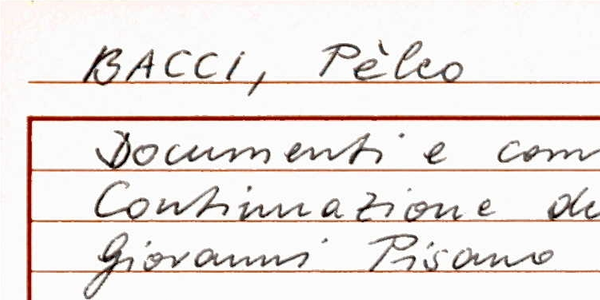 BACCI, Pèleo
Documenti e com
Continuazione de
Giovanni Pisano